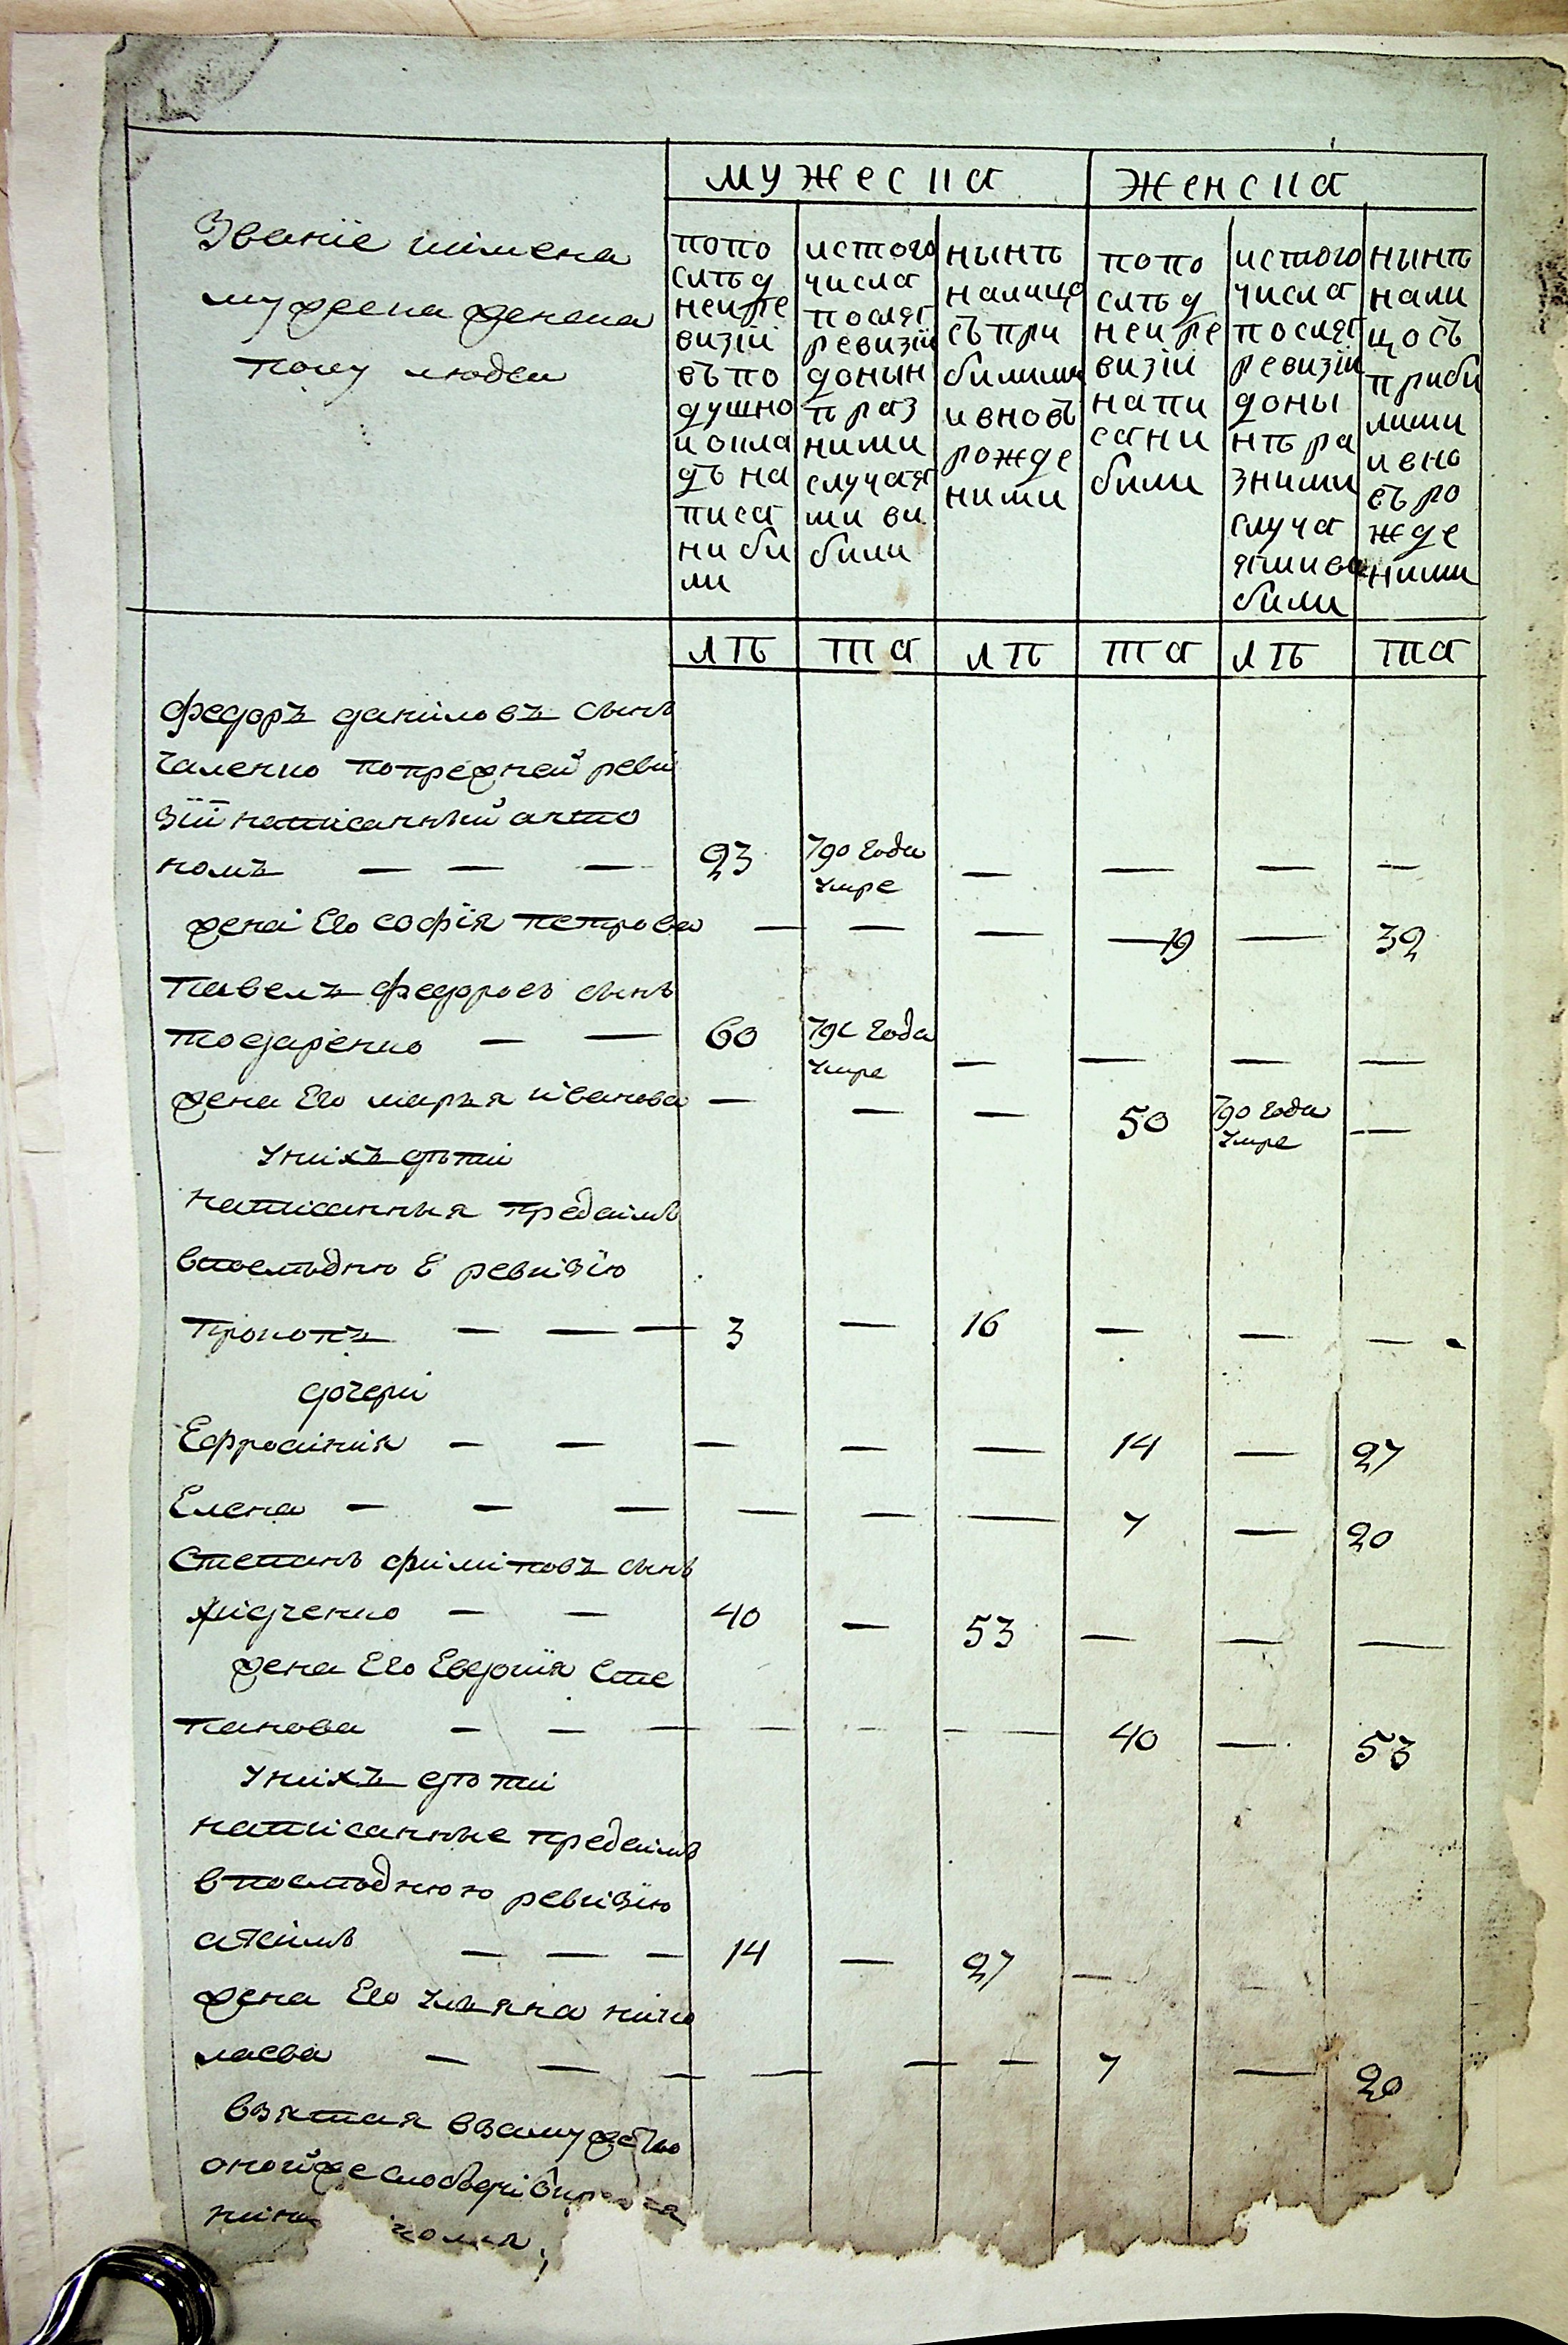 мужеска
женска
Званіе иімена
мужеска женска
полу людеи
попо
слѣд
неи ре
визіи
въ по
душно
и окла
дъ на
писа
ни би
ли
истого
числа
после
ревизіи
до нын
ѣ раз
ними
случая
ми ви
били
нынѣ
налицо
съ при
билими
и вновь
рожде
ними
попо
слѣд
неи ре
визіи
напи
сани
били
истого
числа
после
ревизіи
доны
нѣ ра
зними
случа
ями ви
били
нынѣ
нали
цо съ
приби
лими
и вно
въ ро
жде
ними
лѣ та лѣ та лѣ та
федоръ даніловъ сынъ
галенко попрежней реви
зіи написанный анто
номъ — — — 23 790 года — — — —
умре
жена Его софія петрова — — — — 19 — 32
павелъ федоровъ сынъ
тодаренко — — 60 791 года — — — —
умре
жена Его марья иванова — — — 50 790 года —
умре
унихъ дѣти
написанныя предсимъ
впослѣднюЕ ревизію
прокопъ — — — 3 — 16 — — —
дочери
Ефросинія — — — — — 14 — 27
Елена — — — — — — 7 — 20
степанъ филіповъ сынъ
дидченко — — 40 — 53 — — —
жена Его Евдокія сте
панова — — — — — — — 40 — 53
унихъ дѣти
написанные предсимъ
впослѣднюю ревизію
якимъ — — — 14 — 27 — —
жена Его ульяна нико
лаева — — — — — — 7 — 20
взятая взамужство
онойже слободи